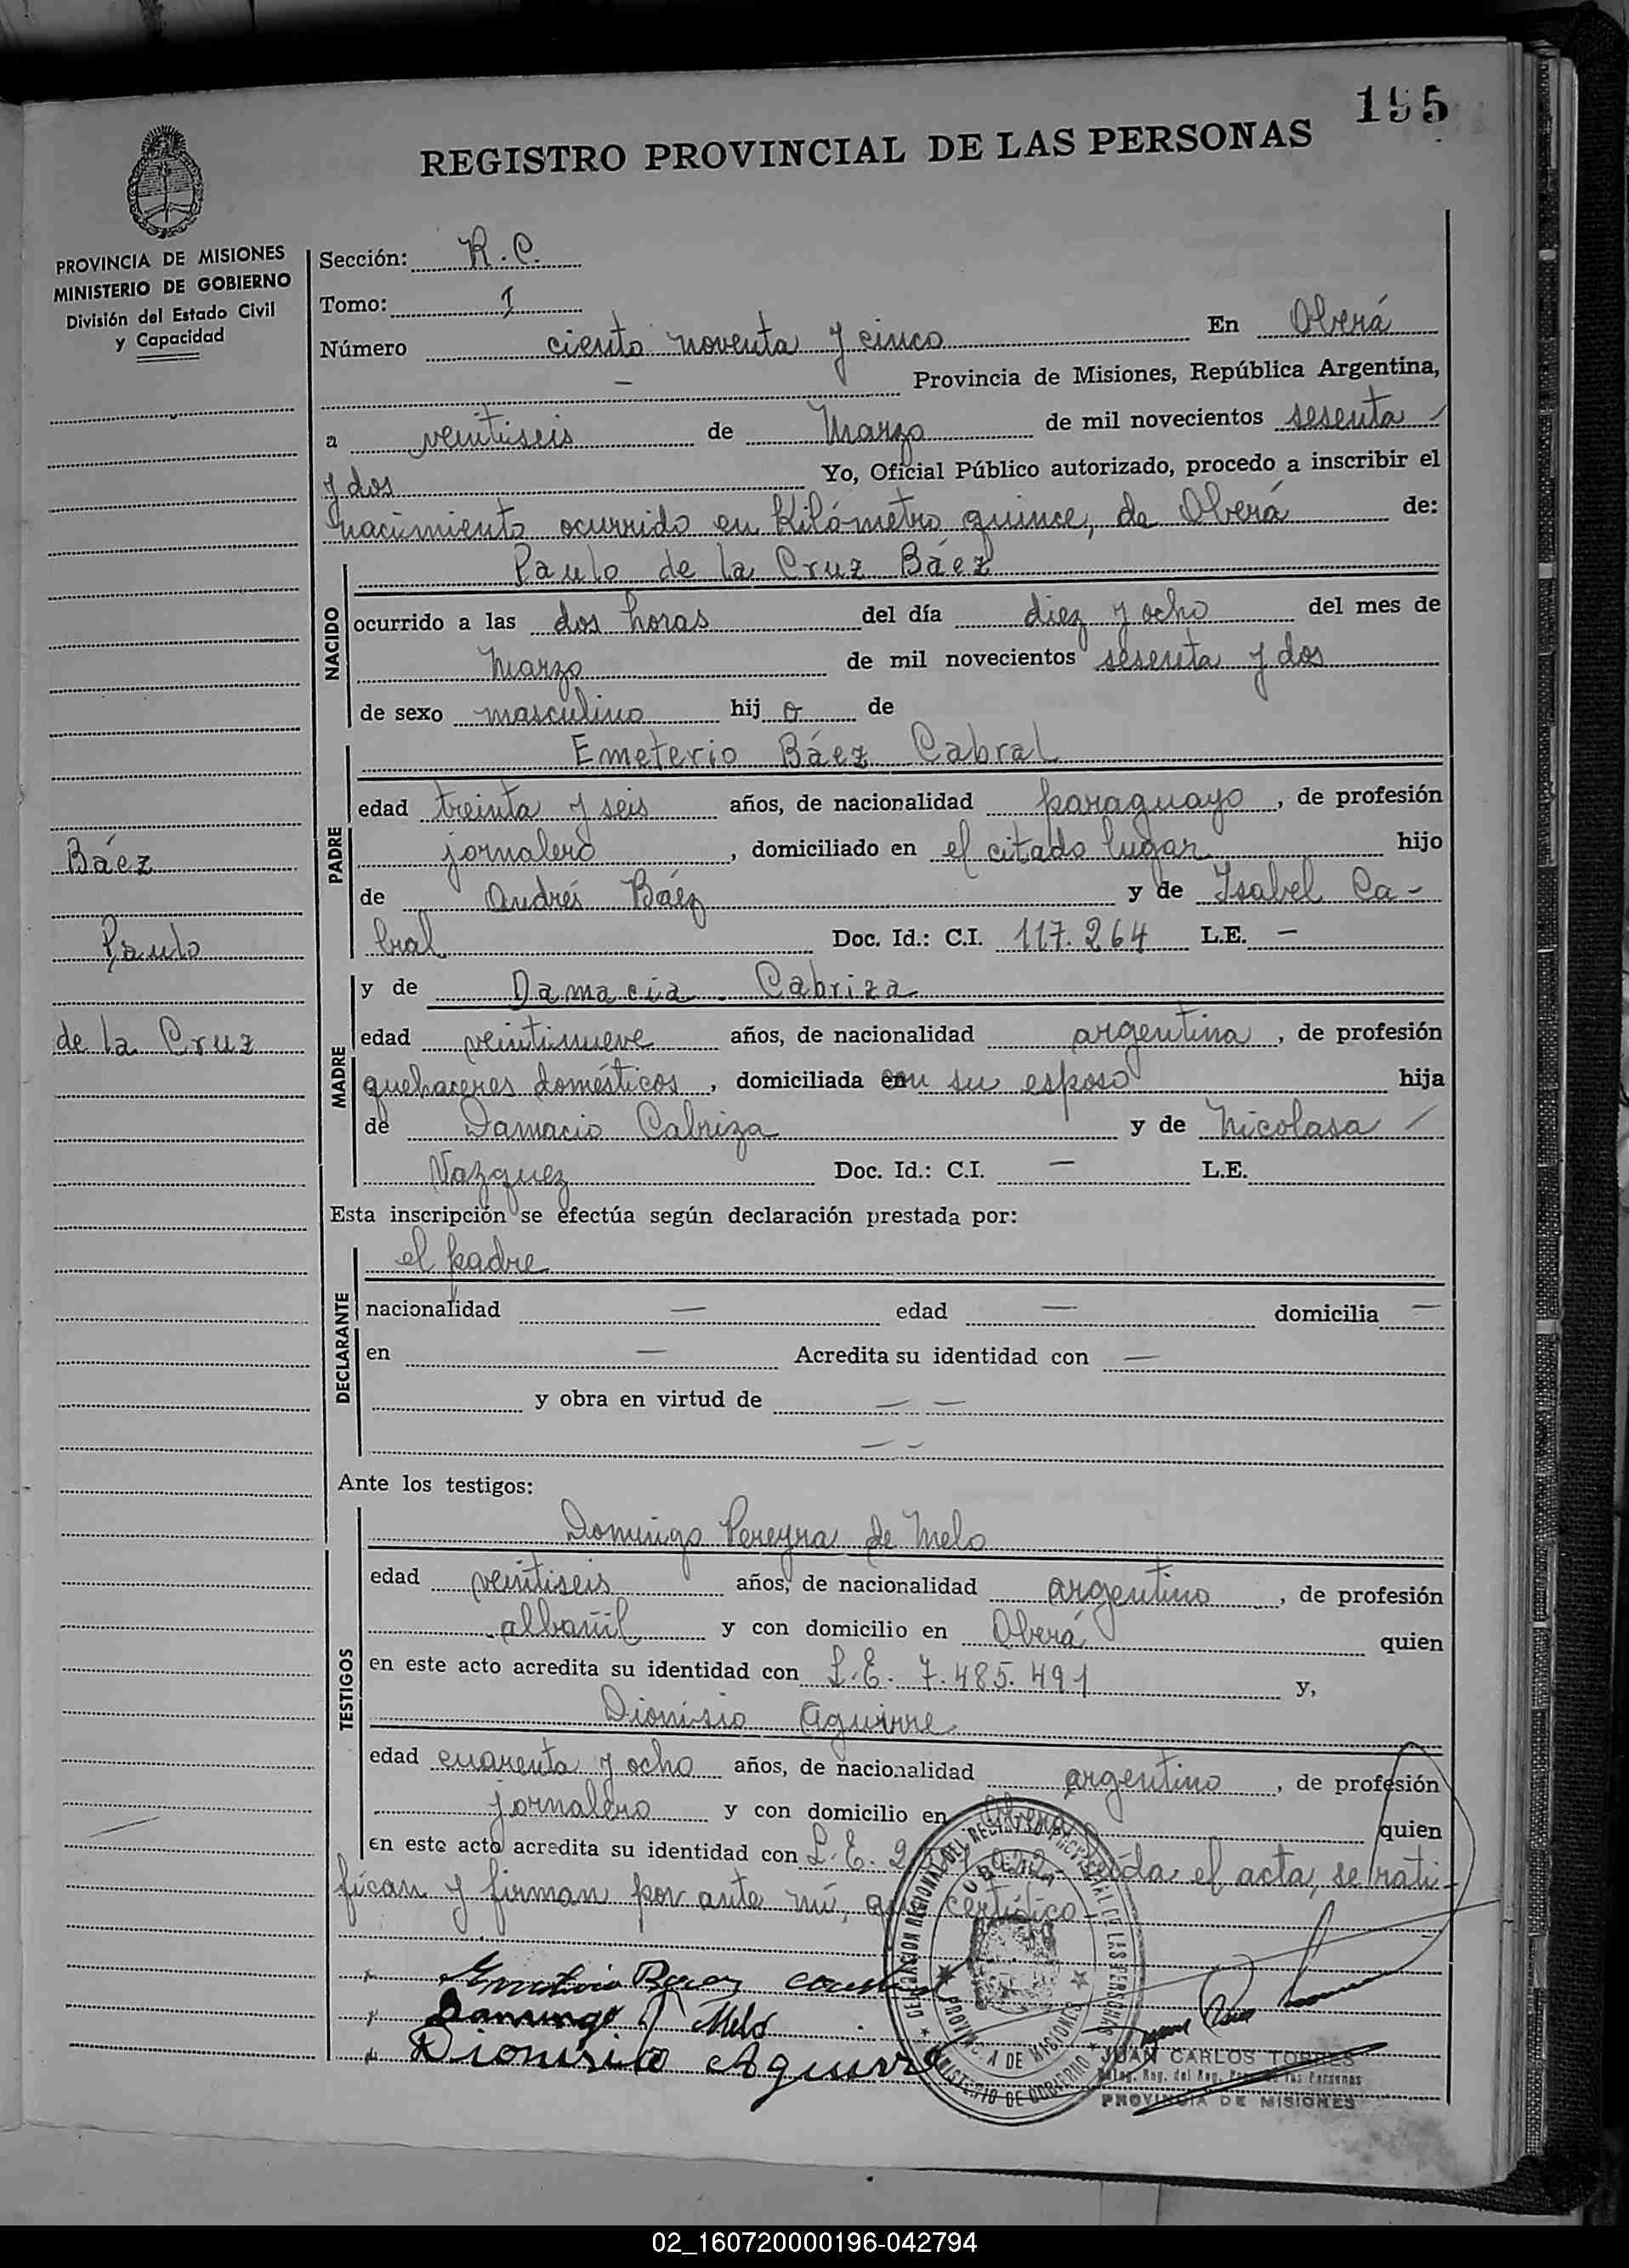 195
REGISTRO PROVINCIAL DE LAS PERSONAS
PROVINCIA DE MISIONES
MINISTERIO DE GOBIERNO
División del Estado Civil
y Capacidad
Sección: R. C.
Tomo: I
Número ciento noventa y cinco En Oberá
— Provincia de Misiones, República Argentina,
a veintiseis de Marzo de mil novecientos sesenta
y dos Yo, Oficial Público autorizado, procedo a inscribir el
nacimiento ocurrido en Kilómetro quince, de Oberá de:
NACIDO
Paulo de la Cruz Báez
ocurrido a las dos horas del día diez y ocho del mes de
Marzo de mil novecientos sesenta y dos
de sexo masculino hij o de
PADRE
Emeterio Báez Cabral
edad treinta y seis años, de nacionalidad paraguayo, de profesión
jornalero, domiciliado en el citado lugar hijo
de Andrés Báez y de Isabel Ca-
bral Doc. Id.: C.I. 117.264 L.E. —
Báez
Paulo
de la Cruz
MADRE
y de Damacia Cabriza
edad veintinueve años, de nacionalidad argentina, de profesión
quehaceres domésticos, domiciliada con su esposo hija
de Damacio Cabriza y de Nicolasa
Vazquez Doc. Id.: C.I. — L.E.
Esta inscripción se efectúa según declaración prestada por:
DECLARANTE
el padre
nacionalidad — edad — domicilia —
en — Acredita su identidad con —
y obra en virtud de — —
— —
Ante los testigos:
TESTIGOS
Domingo Pereyra de Melo
edad veintiseis años, de nacionalidad argentino, de profesión
albañil y con domicilio en Oberá quien
en este acto acredita su identidad con L.E. 7.485.491 y,
Dionisio Aguirre
edad cuarenta y ocho años, de nacionalidad argentino, de profesión
jornalero y con domicilio en quien
en este acto acredita su identidad con L.E. Leída el acta, se rati-
fican y firman por ante mí, que certifico
DELEGACION REGIONAL DEL REGISTRO PROVINCIAL DE LAS PERSONAS
OBERA
PROVINCIA DE MISIONES
MINISTERIO DE GOBIERNO
Emeterio Baez
Domingo P Melo
Dionisio Aguirre
JUAN CARLOS TORRES
Deleg. Reg. del Reg. Prov. de las Personas
PROVINCIA DE MISIONES
02_160720000196-042794